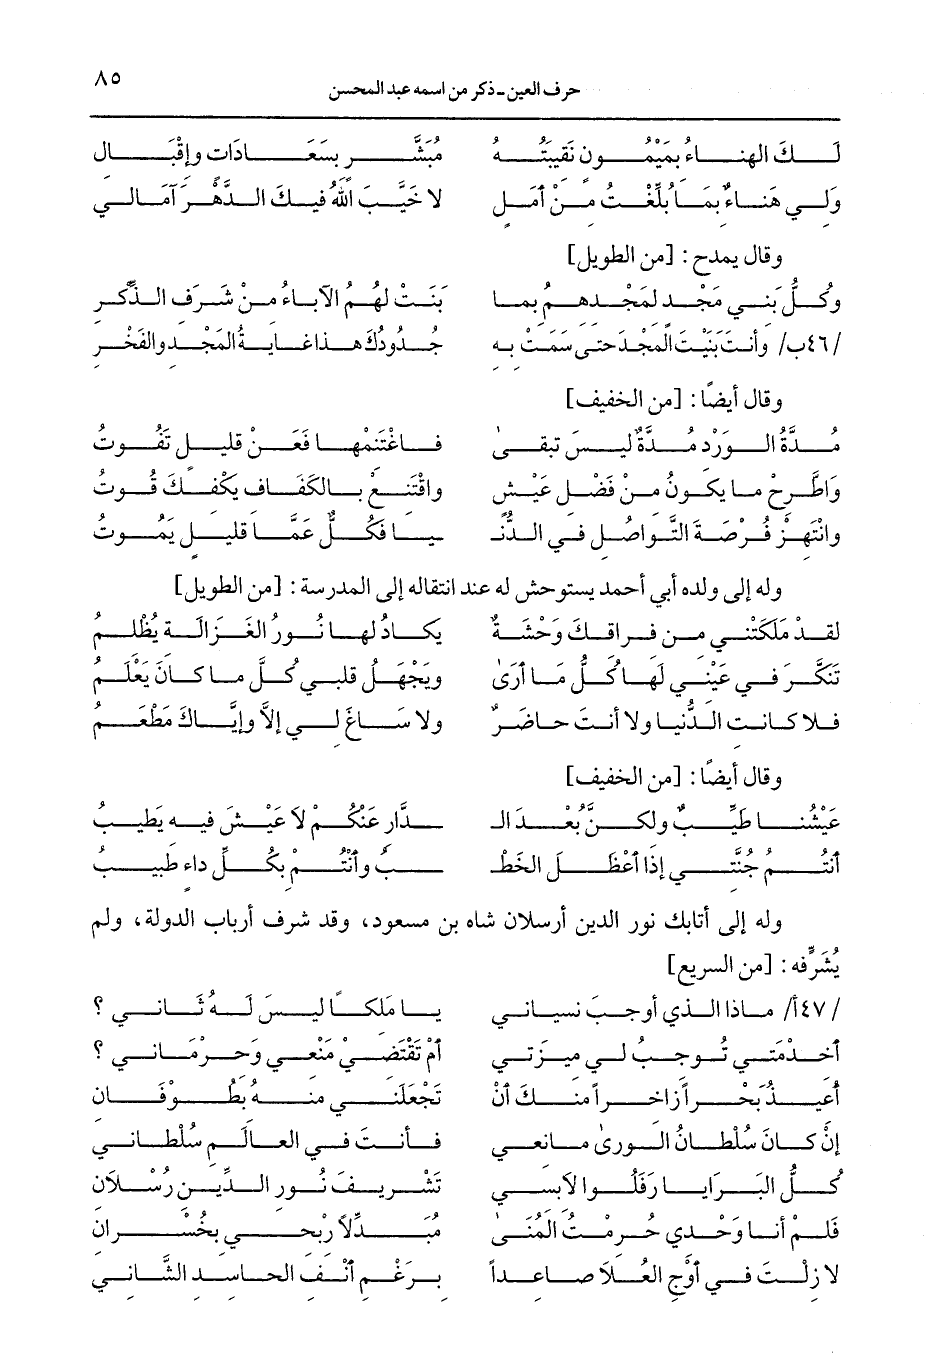 ٨٥
حرف العين - ذكر من اسمه عبد المحسن
لك الهناء بميمون نقيبته مبشر بسعادات وإقبال
ولي هناء بما بلغت من أمل لا خيب الله فيك الدهر آمالي
وقال يمدح : [من الطويل]
وكل بني مجد لمجدهم بما بنت لهم الآباء من شرف الذكر
/٤٦ب/ وأنت بنيت المجد حتى سمت به جدودك هذا غاية المجد والفخر
وقال أيضًا : [من الخفيف]
مدة الورد مدة ليس تبقى فاغتنمها فعن قليل تفوت
واطرح ما يكون من فضل عيش واقتنع بالكفاف يكفك قوت
وانتهز فرصة التواصل في الدنـ ـيا فكل عما قليل يموت
وله إلى ولده أبي أحمد يستوحش له عند انتقاله إلى المدرسة : [من الطويل]
لقد ملكتني من فراقك وحشة يكاد لها نور الغزالة يظلم
تنكر في عيني لها كل ما أرى ويجهل قلبي كل ما كان يعلم
فلا كانت الدنيا ولا أنت حاضر ولا ساغ لي إلا وإياك مطعم
وقال أيضًا : [من الخفيف]
عيشنا طيب ولكن بعد الـ ـدار عنكم لا عيش فيه يطيب
أنتم جنتي إذا أعظل الخطـ ـب وأنتم بكل داء طبيب
وله إلى أتابك نور الدين أرسلان شاه بن مسعود، وقد شرف أرباب الدولة، ولم
يُشَرِّفه : [من السريع]
/٤٧أ/ ماذا الذي أوجب نسياني يا ملكًا ليس له ثاني ؟
أخدمتي توجب لي ميزتي أم تقتضي منعي وحرماني ؟
أعيذ بحراً زاخراً منك أن تجعلني منه بطوفان
إن كان سلطان الورى مانعي فأنت في العالم سلطاني
كل البرايا رفلوا لابسي تشريف نور الدين رسلان
فلم أنا وحدي حرمت المنى مبدلاً ربحي بخسران
لا زلت في أوج العلا صاعداً برغم أنف الحاسد الشاني